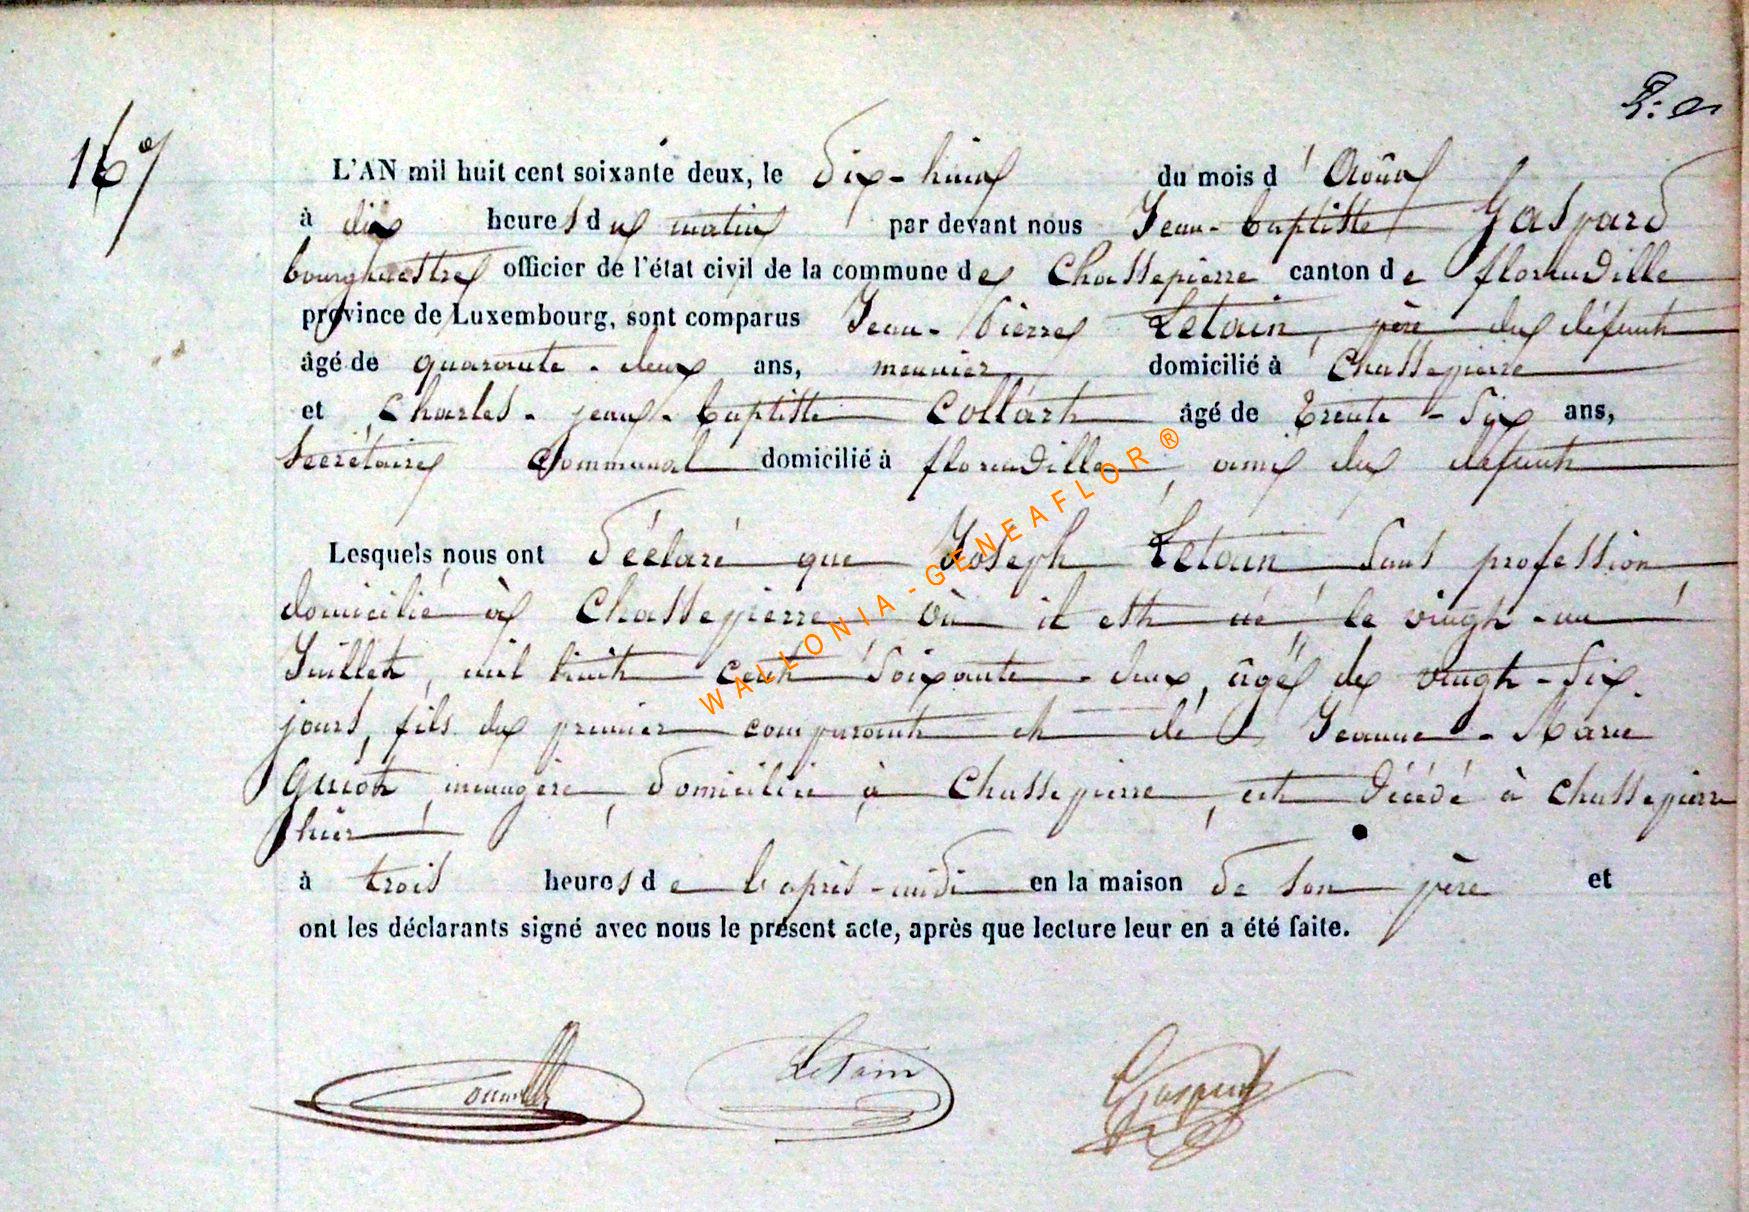 167
L'AN mil huit cent soixante deux, le dix-huit du mois d'Août
à dix heures du matin par devant nous Jean-baptiste Gaspard
bourgmestre officier de l'état civil de la commune de Chassepierre canton de florenville
province de Luxembourg, sont comparus Jean-Pierre Letain, père du défunt
âgé de quarante-deux ans, meunier domicilié à Chassepierre
et Charles-jean-baptiste Collart âgé de trente-six ans,
secrétaire communal domicilié à florenville, ami du défunt
Lesquels nous ont déclaré que Joseph Letain, sans profession,
domicilié à Chassepierre, où il est né, le vingt-un
Juillet, mil huit cent soixante-deux, âgé de vingt-six
jours, fils du premier comparant et de Jeanne-Marie
Guiot, ménagère, domiciliée à Chassepierre, est décédé à Chassepierre
hier
à trois heures de l'après-midi en la maison de son père et
ont les déclarants signé avec nous le présent acte, après que lecture leur en a été faite.
Letain
Gaspard
WALLONIA-GENEAFLOR®